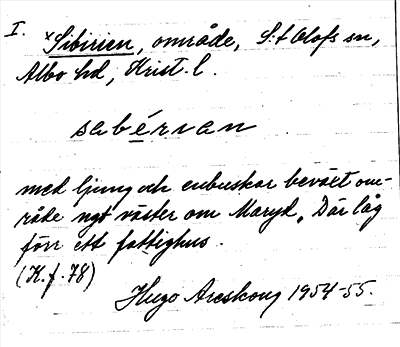 I. ×Sibirien, område, S:t Olofs sn,
Albo hd, Krist. l.
sabérian
med ljung och enbuskar beväxt om-
råde ngt väster om Maryd. Där låg
förr ett fattighus.
(K.f. 78)
Hugo Areskoug 1954-55.